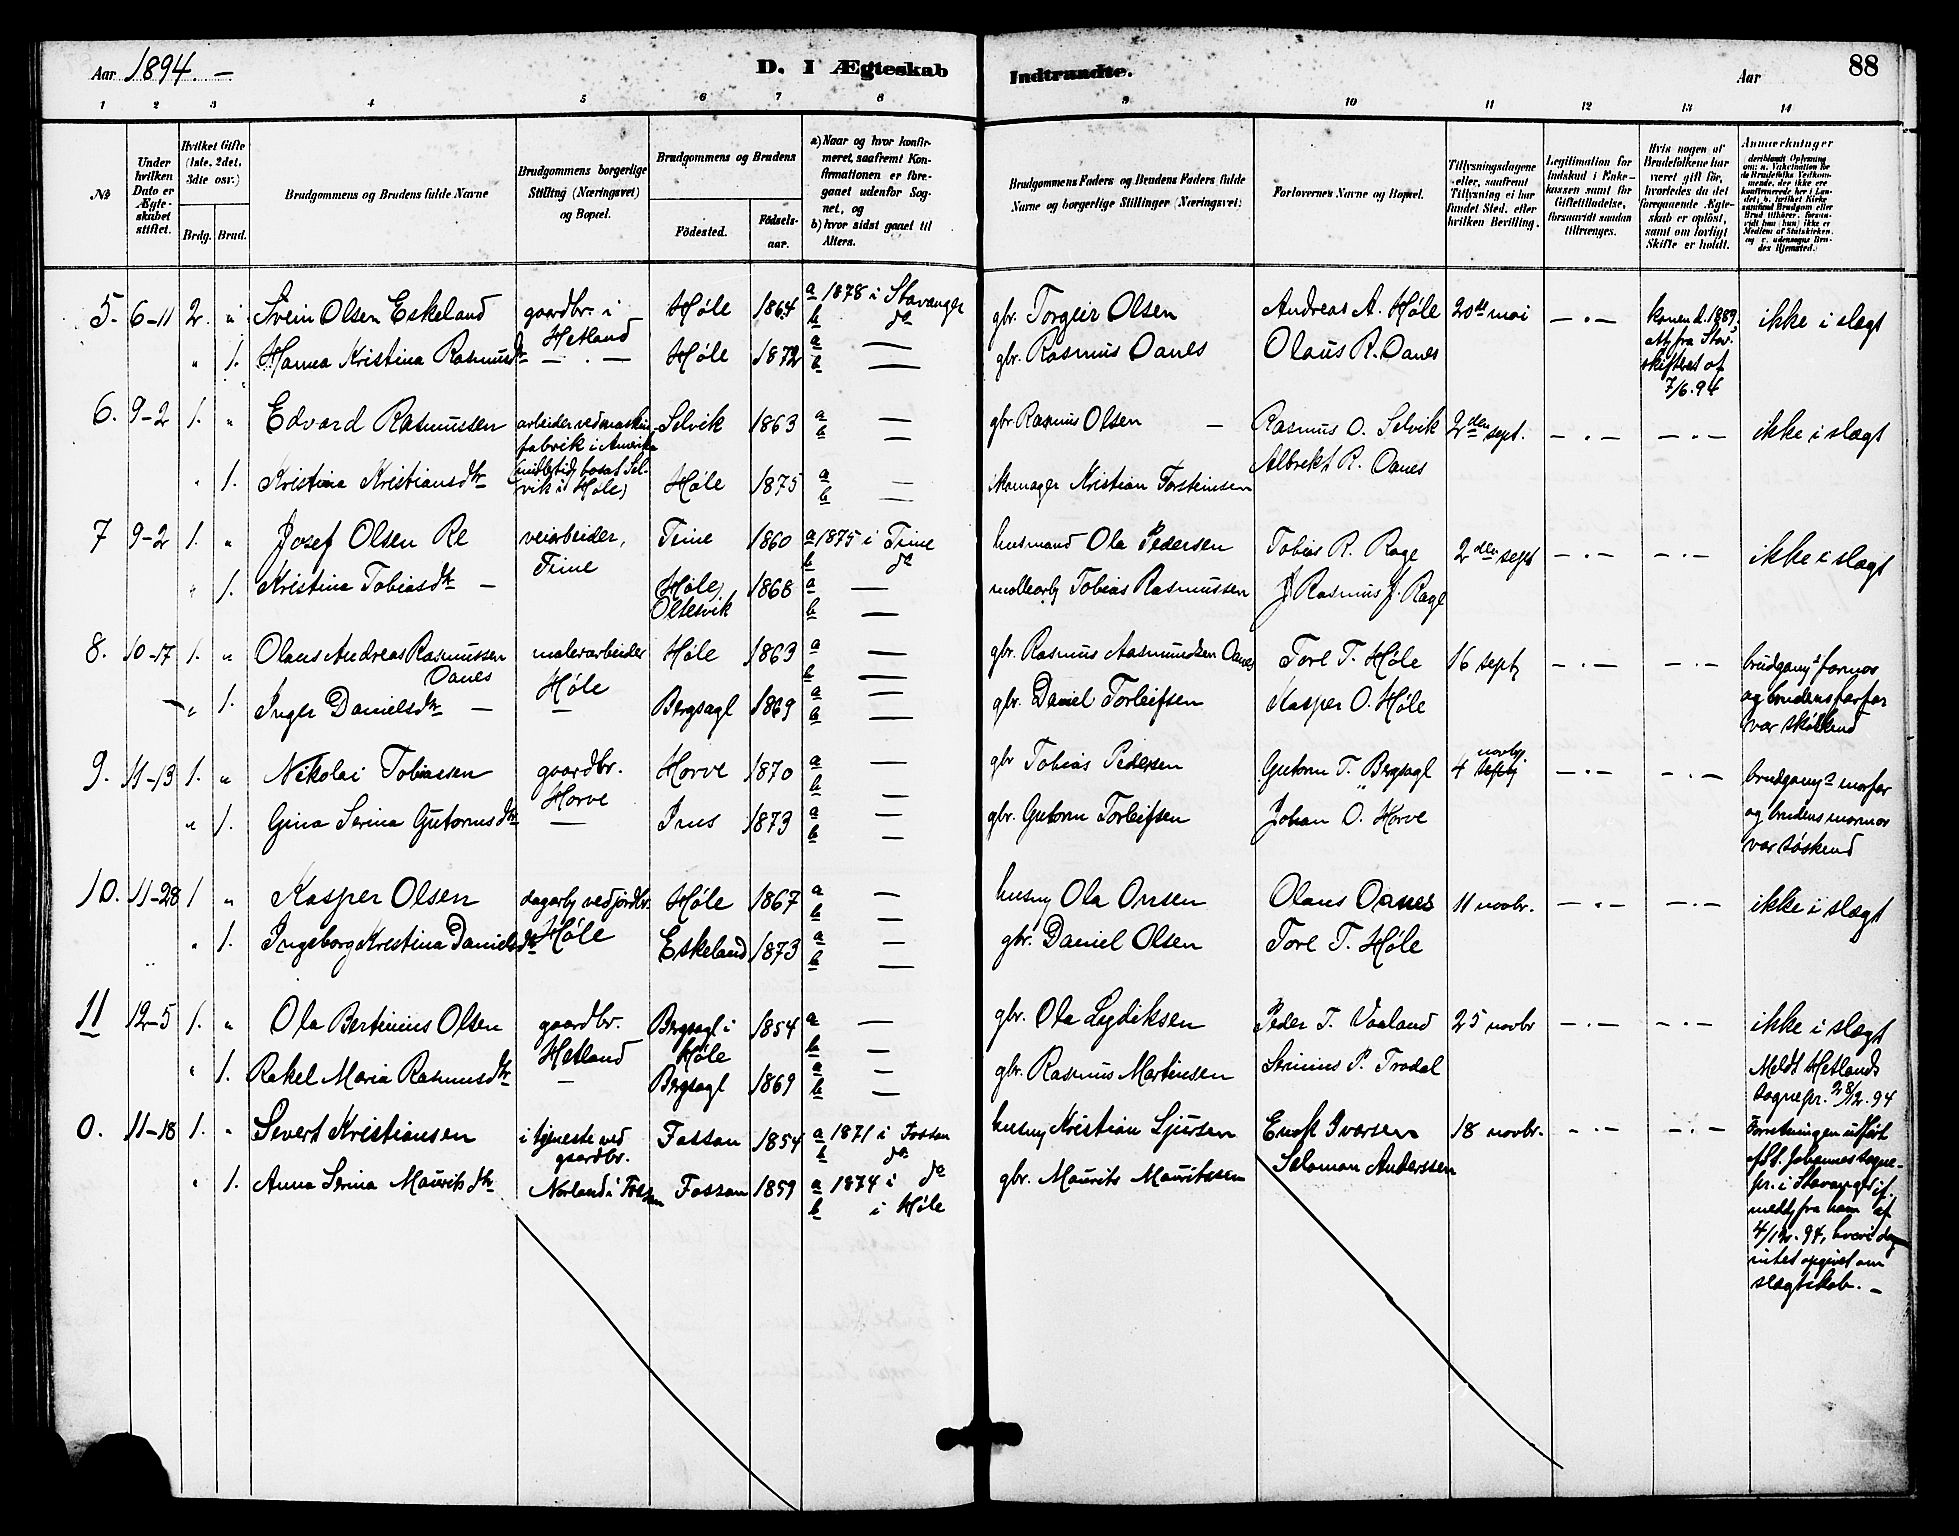 Aar 1894. –
D. I Ægteskab Indtraadte.
Aar
88
1 2 3 4 5 6 7 8 9 10 11 12 13 14
No
Under hvilken Dato er Ægteskabet stiftet.
Hvilket Gifte (1ste, 2det, 3die osv.)
Brdg. Brud.
Brudgommens og Brudens fulde Navne
Brudgommens borgerlige Stilling (Næringsvei) og Bopæl.
Brudgommens og Brudens
Födested.
Födsels-aar.
a) Naar og hvor konfirmeret, saafremt Konfirmationen er foregaaet udenfor Sognet, og
b) hvor sidst gaaet til Alters.
Brudgommens Faders og Brudens Faders fulde Navne og borgerlige Stillinger (Næringsvei)
Forlovernes Navne og Bopæl.
Tillysningsdagene eller, saafremt Tillysning ei har fundet Sted, efter hvilken Bevilling.
Legitimation for Indskud i Enkekassen samt for Giftetilladelse, forsaavidt saadan tiltrænges.
Hvis nogen af Brudefolkene har været gift før, hvorledes da det foregaaende Ægteskab er oplöst, samt om lovligt Skifte er holdt.
Anmærkninger
5. 6-11 2. " Svein Olsen Eskeland gaardbr. i Hetland Høle 1864 a 1878 i Stavanger b do gbr. Torgeir Olsen Andreas A. Høle 20de mai – . – konen d. 1889, att. fra Stav. skifteret af 7/6.94 ikke i slægt
" 1. Hanna Kristina Rasmusdtr – . – Høle 1872 a — b — gbr. Rasmus Oanes Olaus R. Oanes
6. 9-2 1. " Edvard Rasmussen arbeider ved maskinfabrik i Amerika (midlertidig bosat Selvik i Høle) Selvik 1863 a — b — gbr. Rasmus Olsen – Rasmus O. Selvik 2den sept. – . – – . – ikke i slægt
" 1. Kristina Kristiansdtr Høle 1875 a — b — skomager Kristian Torsteinsen Albrekt R. Oanes
7 9-2 1. " Josef Olsen Re veiarbeider, Time Time 1860 a 1875 i Time b do husmand Ola Pedersen Tobias R. Rage 2den sept – . – – . – ikke i slægt
" 1. Kristina Tobiasdtr – Høle, Oltesvik 1868 a — b — Tobias Rasmussen Rasmus J. Rage
8. 10-17 1. " Olaus Andreas Rasmussen Oanes malerarbeider Høle Høle 1863 a — b — gbr. Rasmus Aasmundsen Oanes Tore T. Høle 16 septbr – . – – . – brudgom.s farmor og brudens farfar var søskend
" 1. Inger Danielsdtr – — Bergsagl 1869 a — b — gbr. Daniel Torleifsen Kasper O. Høle
9. 11-13 1. " Nikolai Tobiassen gaardbr. Horve Horve 1870 a — b — gbr Tobias Pedersen Gutorm T. Bergsagl 4 novbr – . – – . – brudgom.s morfar og brudens mormor var søskend
" 1. Gina Serina Gutormsdtr — Ims 1873 a — b — gbr. Gutorm Torleifsen Johan O. Horve
10. 11-28 1 " Kasper Olsen dagarb. ved jordbr. Høle Høle 1867 a — b — husm. Ola Olsen Olaus Oanes 11 novbr. – . – – . – ikke i slægt
" 1. Ingeborg Kristina Danielsdtr Eskeland 1873 a — b — gbr. Daniel Olsen Tore T. Høle
11 12-5 1. " Ola Bertinius Olsen gaardbr. Hetland Bergsagl i Høle 1854 a — b — gbr. Ola Lydiksen Peder T. Vaaland 25 novbr – . – – . – ikke i slægt Meldt Hetlands sognepr. 28/12.94
" 1. Rakel Maria Rasmusdtr — Bergsagl 1869 a — b — gbr. Rasmus Martinsen Serinius P. Trodal
0. 11-18 1. " Severt Kristiansen i tjeneste ved gaardbr. Fossan 1854 a 1871 i Fossan b do husm. Kristian Sjursen Enok Iversen 18 novbr. – . – – . – Forretningen utført af St. Johannes sognepr. i Stavanger if. meddl. fra ham af 4/12.94, hvori dog intet opgivet om slægtskab. –
" 1. Anna Serina Mauritsdtr Norland i Fossan Fossan 1859 a 1874 i do b i Høle gbr. Maurits Mauritssen Salomon Anderssen